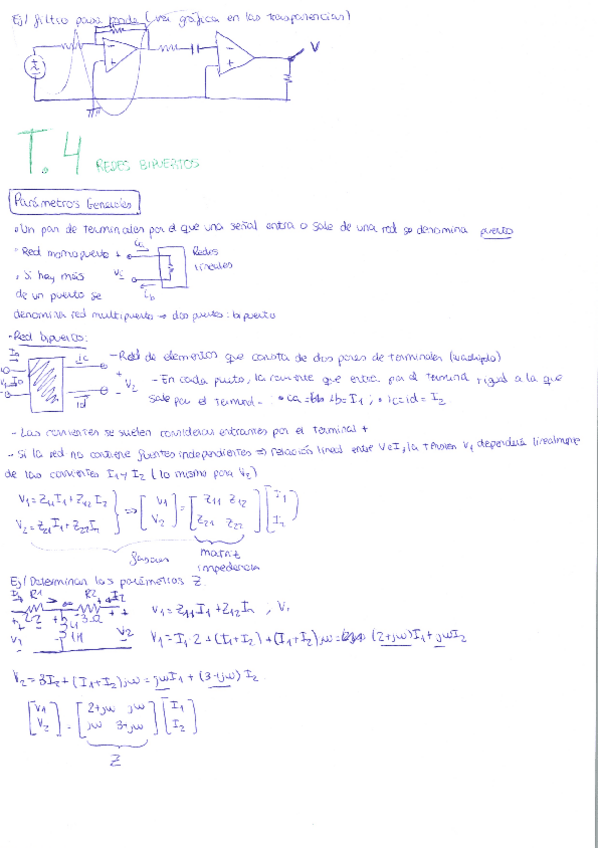 Ej/ filtro pasa banda (ver gráfica en las trasparencias)
V
T.4 REDES BIPUERTOS
Parámetros Generales
• Un par de terminales por el que una señal entra o sale de una red se denomina puerto
• Red monopuerto + Ia Redes
, Si hay más V - lineales
de un puerto se Ib
denomina red multipuerto → dos puertos: bipuerto
- Red bipuerto:
Ia Ic - Red de elementos que consta de dos pares de terminales
+ V2 - - En cada puerto, la corriente que entra por el terminal + igual a la que
Id sale por el terminal - : • Ib = I1 ; • Ic = Id = I2
- Las corrientes se suelen considerar entrantes por el terminal +
- Si la red no contiene fuentes independientes ⇒ relación lineal entre V e I, la tensión V1 dependerá linealmente
de las corrientes I1 y I2 (lo mismo para V2)
V1 = Z11 I1 + Z12 I2
V2 = Z21 I1 + Z22 I2
⇒ [V1 V2] = [Z11 Z12 Z21 Z22] [I1 I2]
fasores matriz
impedancia
Ej/ Determinar los parámetros Z.
I1 R1 R2 I2
2Ω 3Ω V1 = Z11 I1 + Z12 I2 , V2
V1 1H V2 V1 = I1·2 + (I1+I2)jω = (2+jω)I1 + jωI2
V2 = 3I2 + (I1+I2)jω = jωI1 + (3+jω)I2
[V1 V2] = [2+jω jω jω 3+jω] [I1 I2]
Z